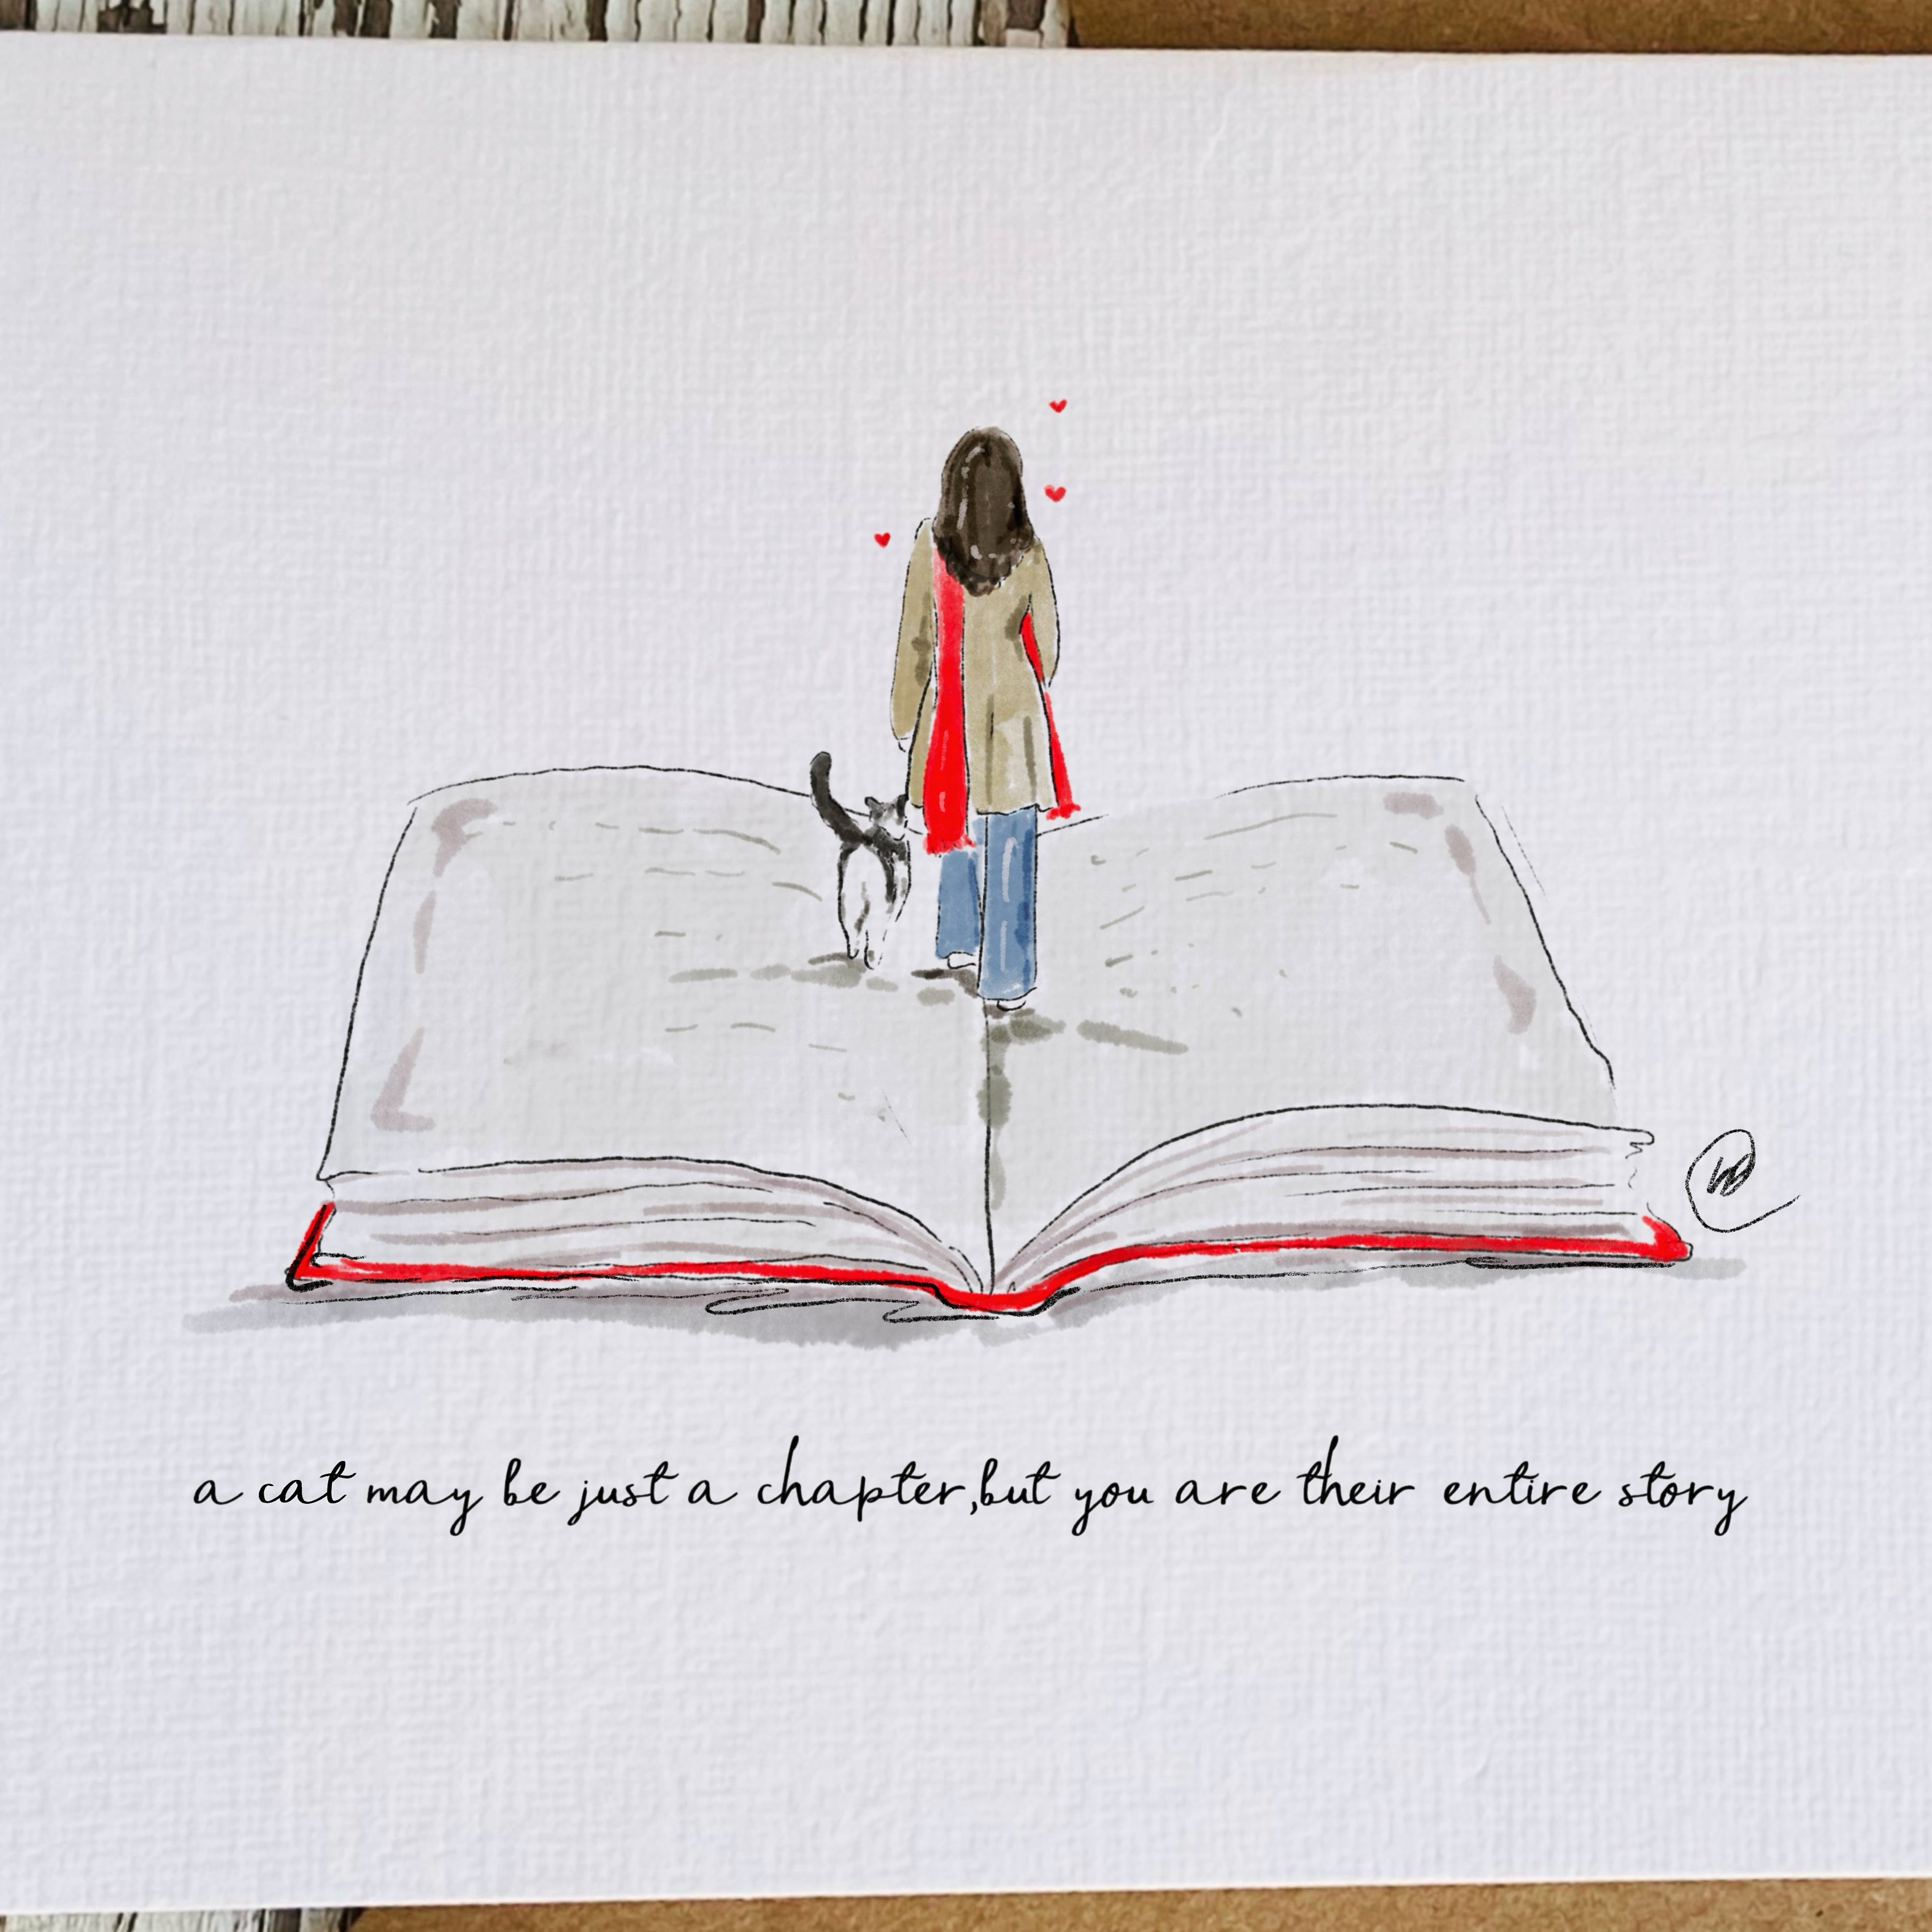 a cat may be just a chapter,but you are their entire story